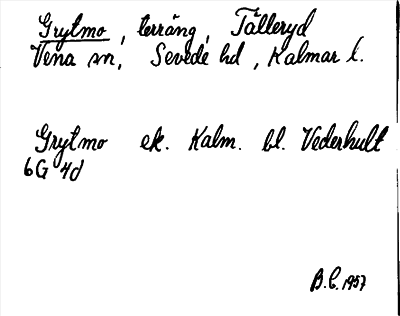 Grytmo, terräng, Tälleryd
Vena sn, Sevede hd, Kalmar l.
Grytmo ek. Kalm. bl. Vederhult
6G 4d
B.C. 1957